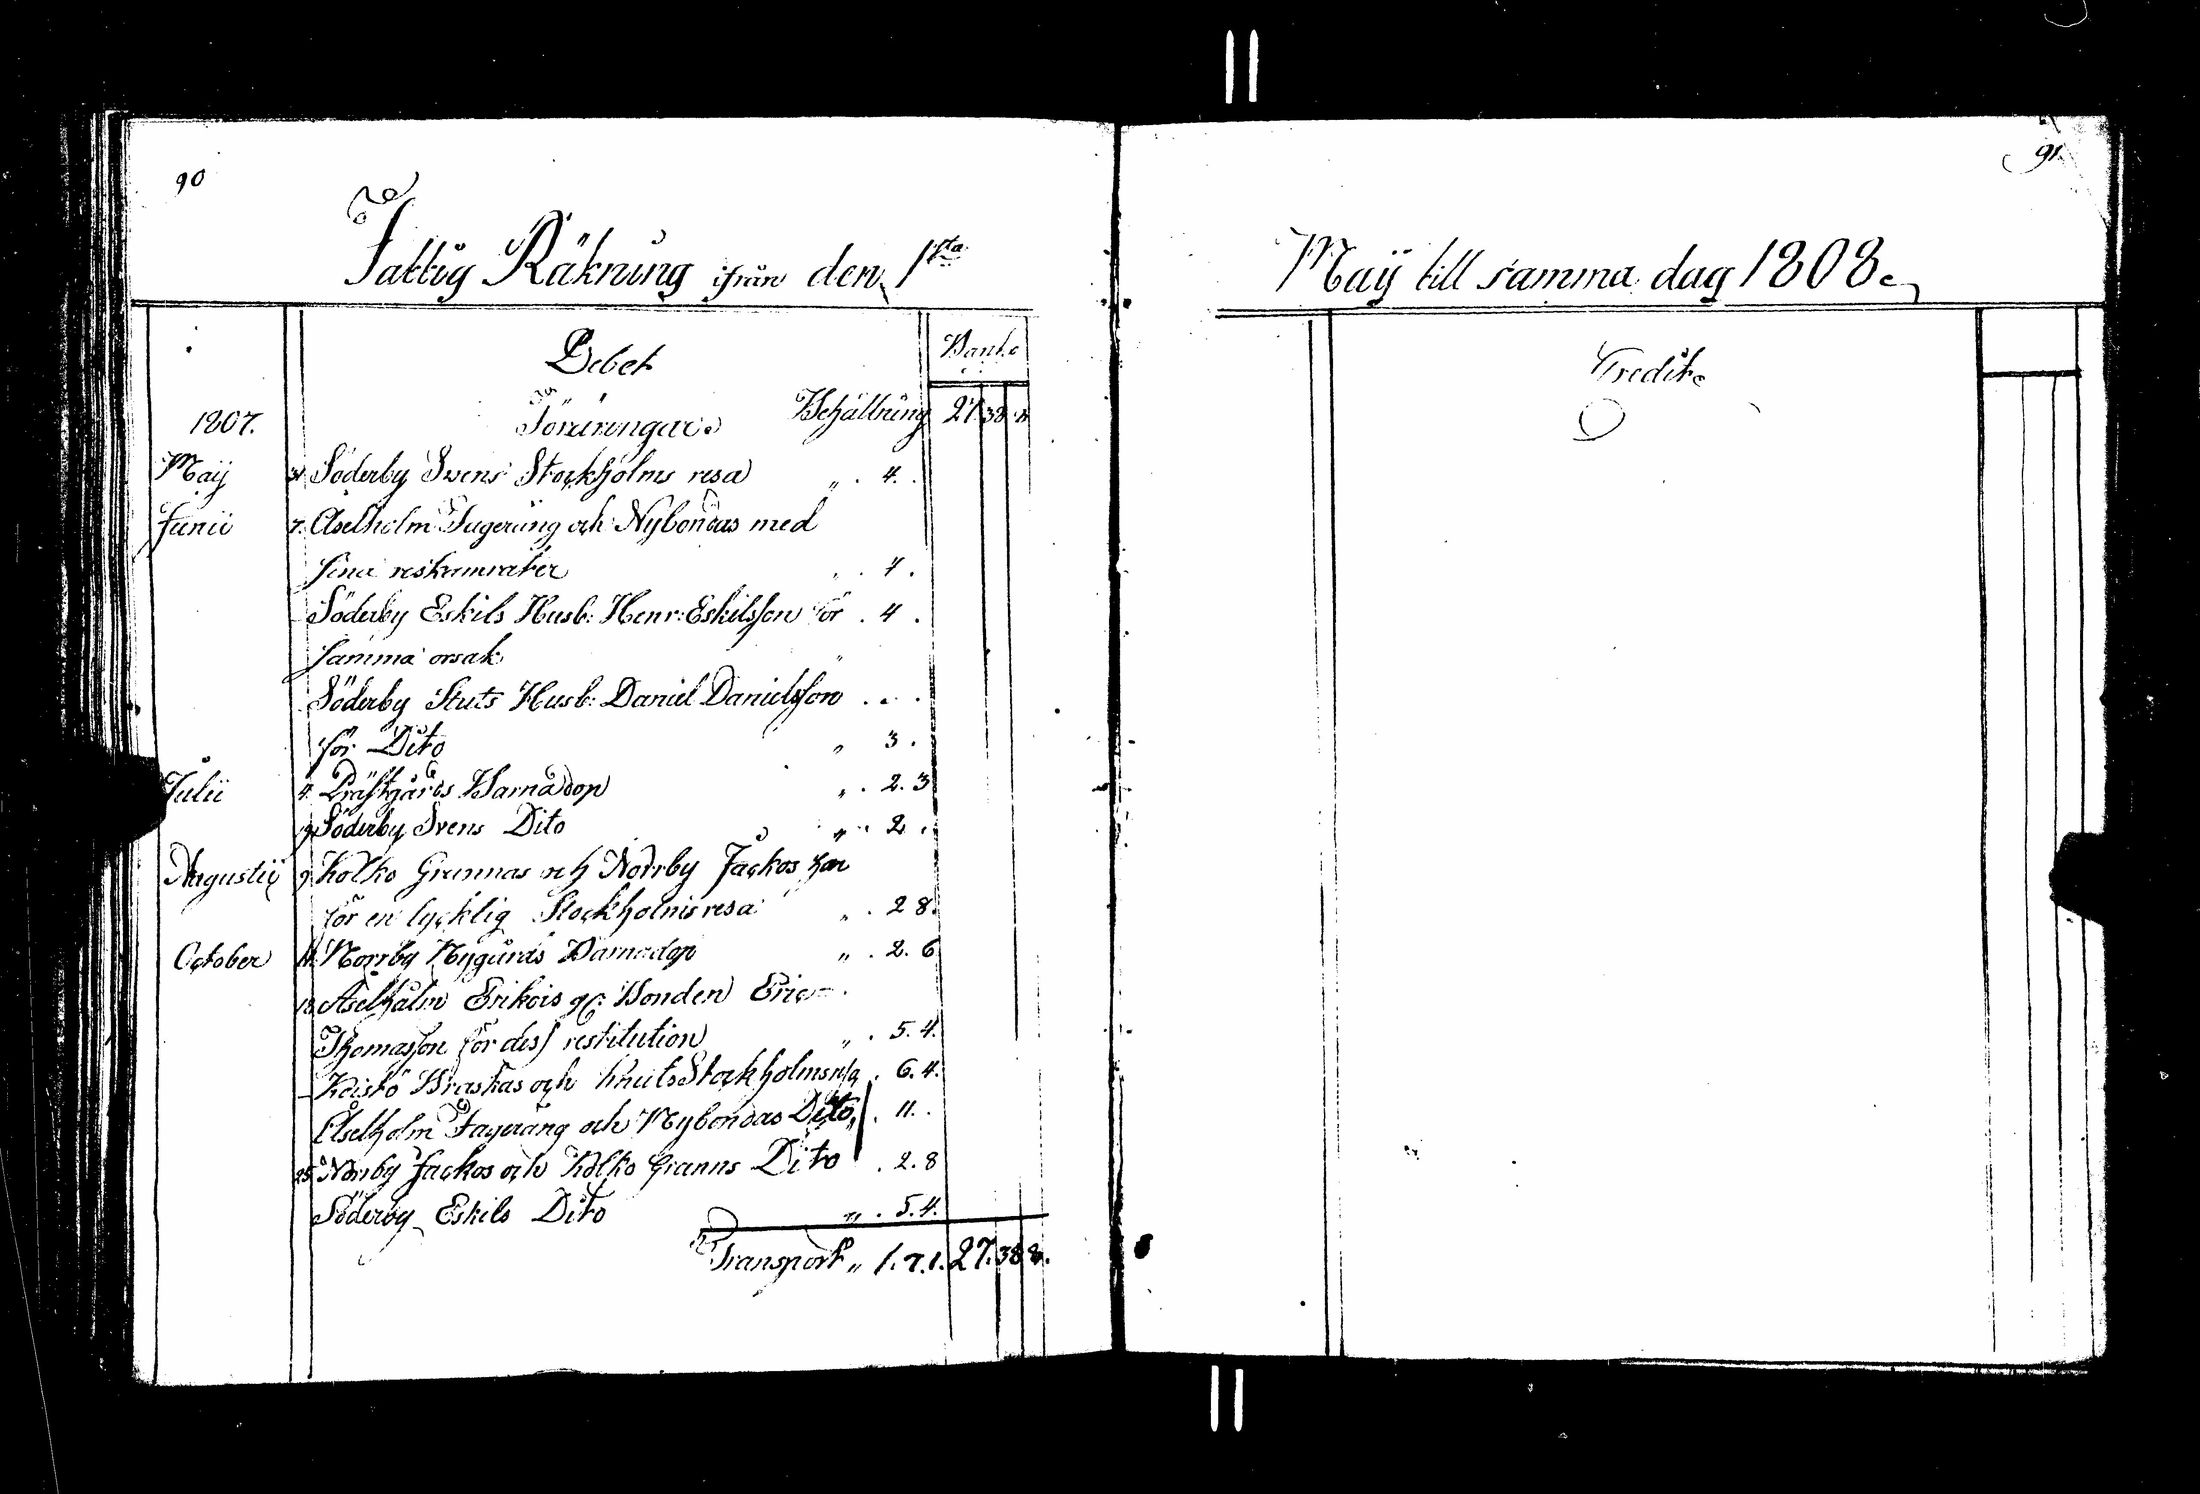 90
91.
Fattig Räkning ifrån den 1sta
Maÿ till samma dag 1808.
Debet
Banko
Credit.
1807.
Föräringar.
Behållning 27. 38. 8
Maÿ 31 Söderby Svens Stockholms resa „ . 4. .
Junii 7. Åselholm Fageräng och Nybondas med
sina reskamrater „ . 7 .
Söderby Eskils Husb: Henr: Eskilsson för . 4 .
samma orsak „
Söderby Stuts Husb: Daniel Danielsson . . .
för Dito „ 3 .
Julii 4. Prästgårds Barnadop „ . 2. 3
19 Söderby Svens Dito „ . 2 .
Augustii 9 Kolko Grannas och Norrby Jackos
för en lycklig Stockholmsresa „ . 2 8.
October 11. Norrby Nygårds Barnadop „ . 2. 6
18 Åselholm Erikois gl: Bonden Eric
Thomasson för dess restitution „ . 5. 4.
Koistö Braskas och Knuts Stockholmsresa . 6. 4.
Åselholm Fageräng och Nybondas Dito „ . 11. .
25 Norrby Jackos och Kolko Granns Dito . 2. 8
Söderby Eskils Dito „ . 5. 4.
Transport „ 1. 7. 1. 27. 38 8.